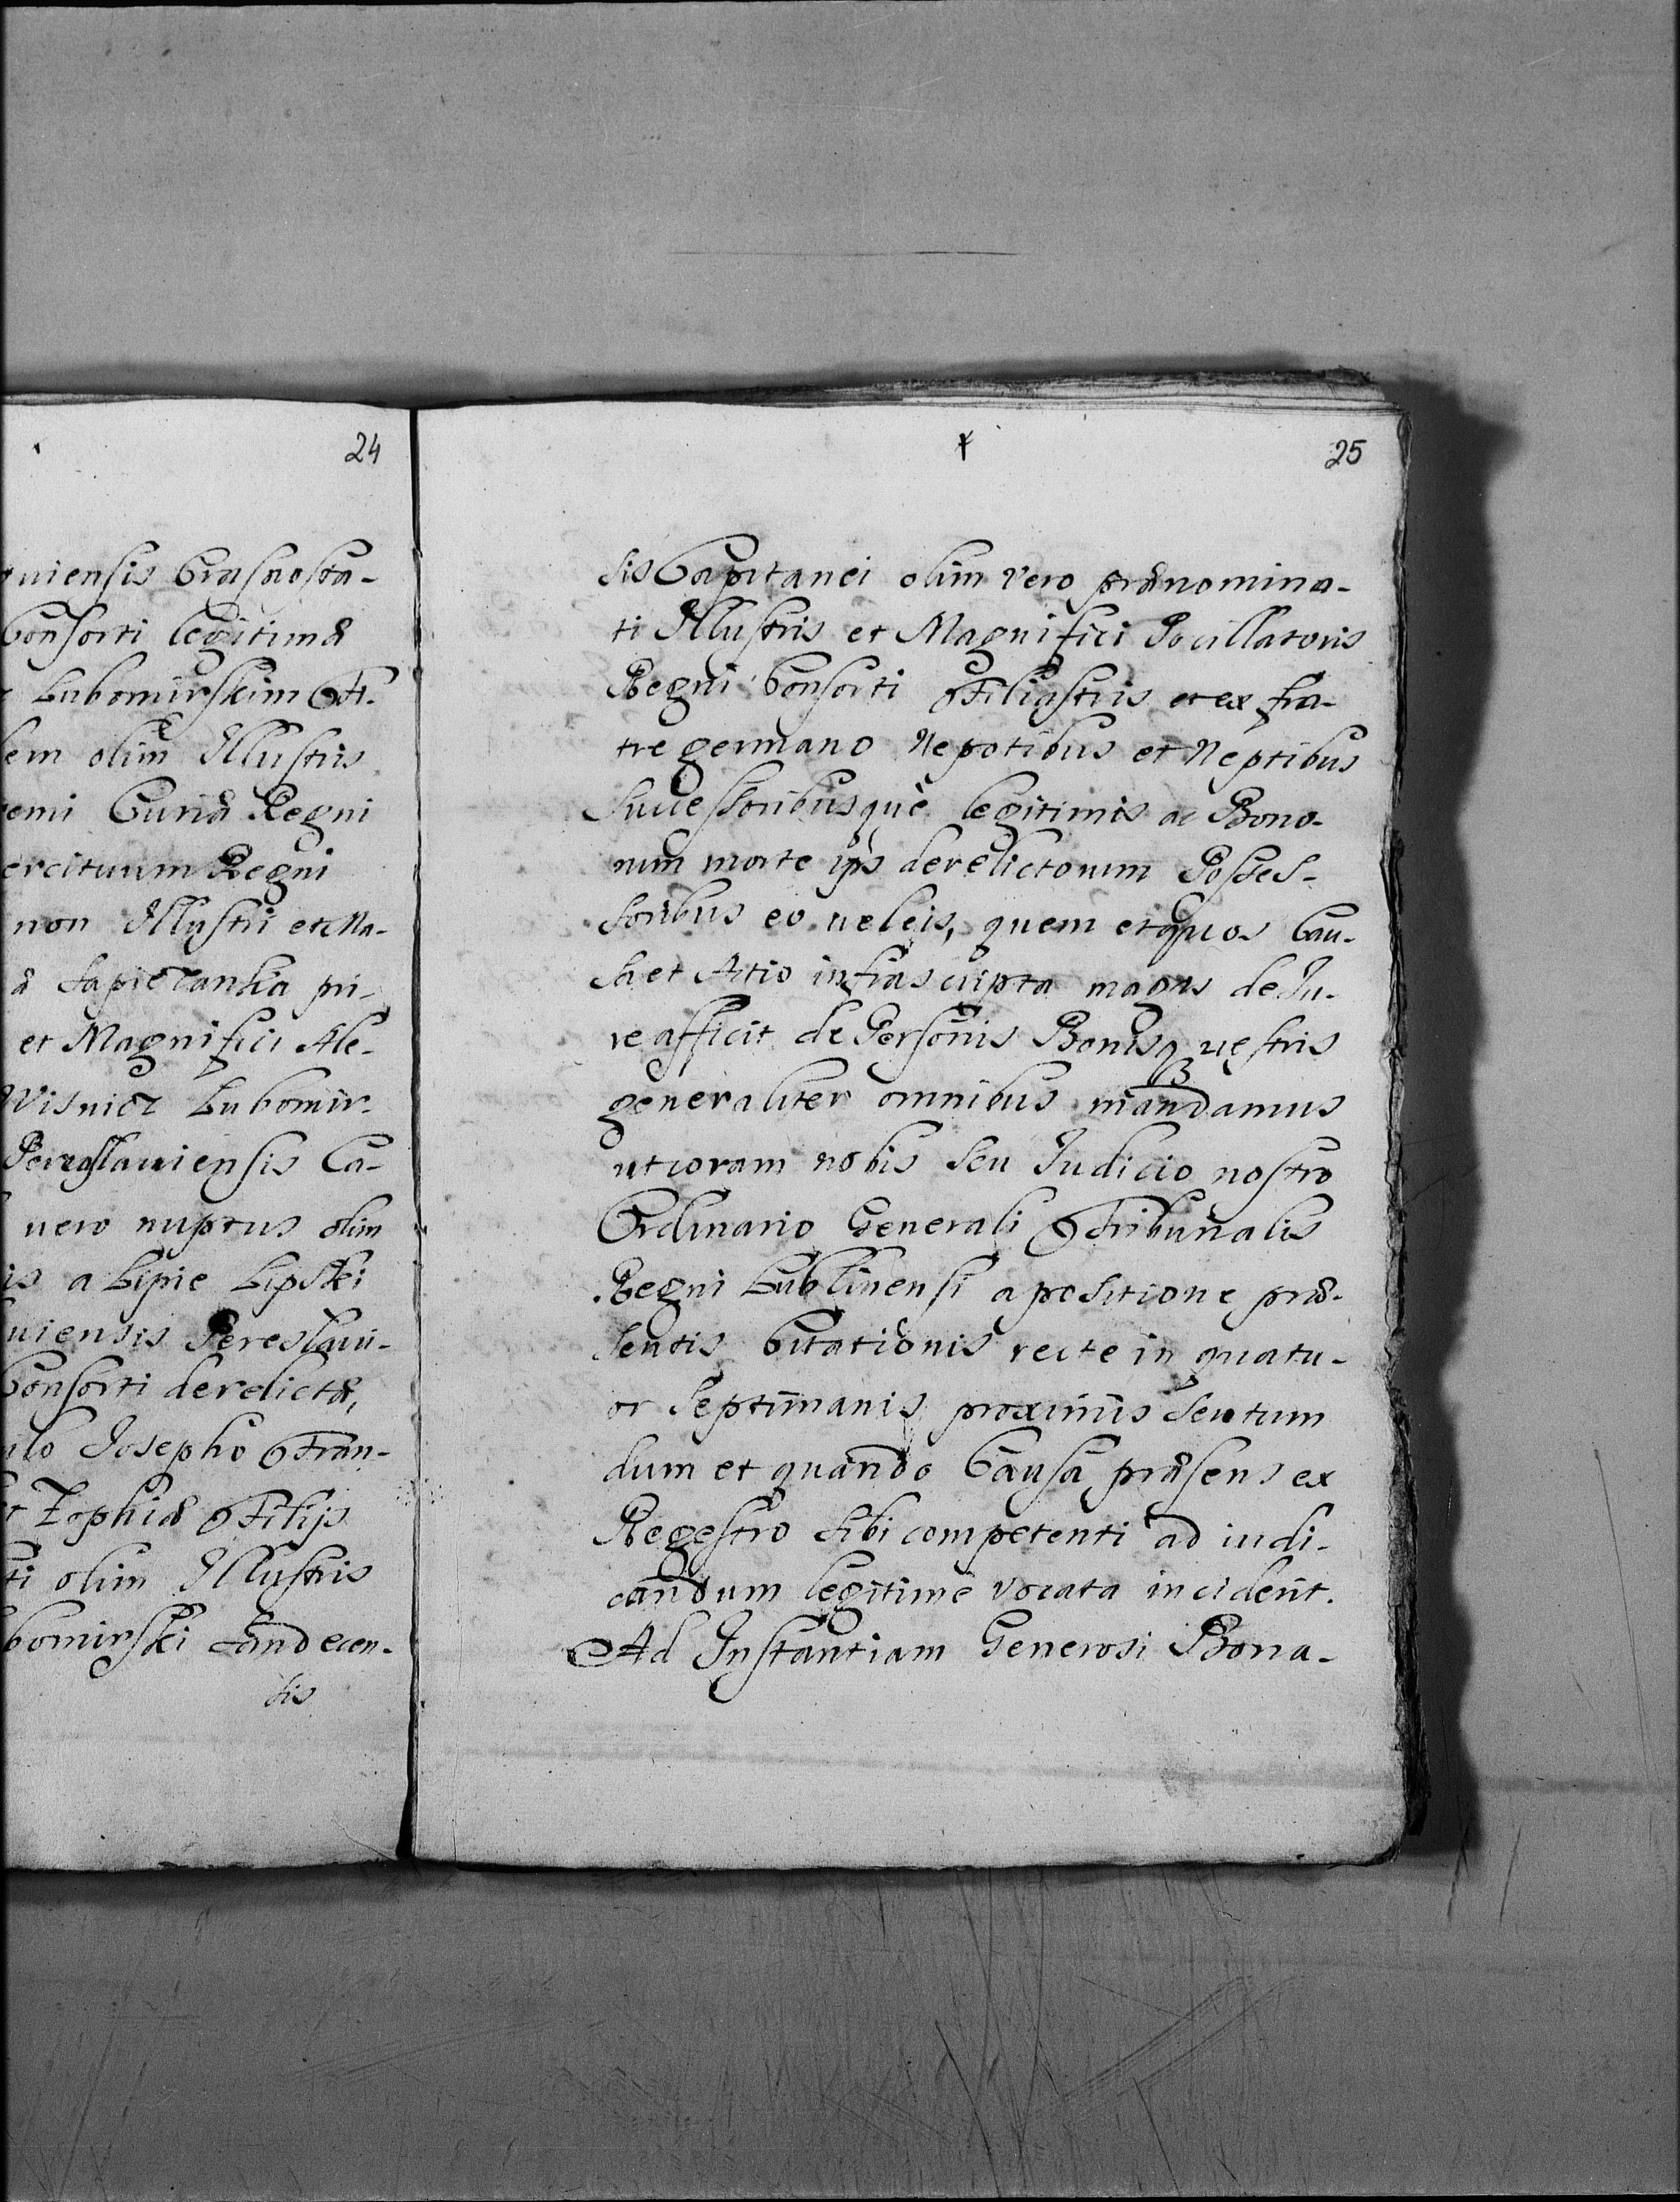 24
uiensis Crasnosta-
Consorti legitimæ
Lubomirskim Fi-
lem olim Illustris
remi Curiæ Regni
ercituum Regni
non Illustri et Ma-
æ Sapiezanka pri-
et Magnifici Ale-
Wisnicz Lubomir-
Pereaslauiensis Ca-
uero nuptus olim
is a Lipie Lipski
uiensis Pereslaui-
Consorti derelictæ,
ulo Josepho Fran-
et Zophiæ Filijs
ti olim Illustris
bomirski Sandecen-
sis
25
sis Capitanei olim vero prænomina-
ti Illustris et Magnifici Pocillatoris
Regni Consorti Filiastris et ex fra-
tre germano Nepotibus et Neptibus
Successoribusque legitimis ac Bono-
rum morte ips derelictorum Posses-
soribus eo uel eis, quem et quos Cau-
sa et Actio infrascripta magis de Ju-
re afficit de Personis Bonisq uestris
generaliter omnibus mandamus
ut coram nobis seu Judicio nostro
Ordinario Generali Tribunalis
Regni Lublinensi a positione præ-
sentis Citationis recte in quatu-
or Septimanis proximis seu tum
dum et quando Causa præsens ex
Regestro sibi competenti ad iudi-
candum legitime vocata inciderit.
Ad Instantiam Generosi Bona-